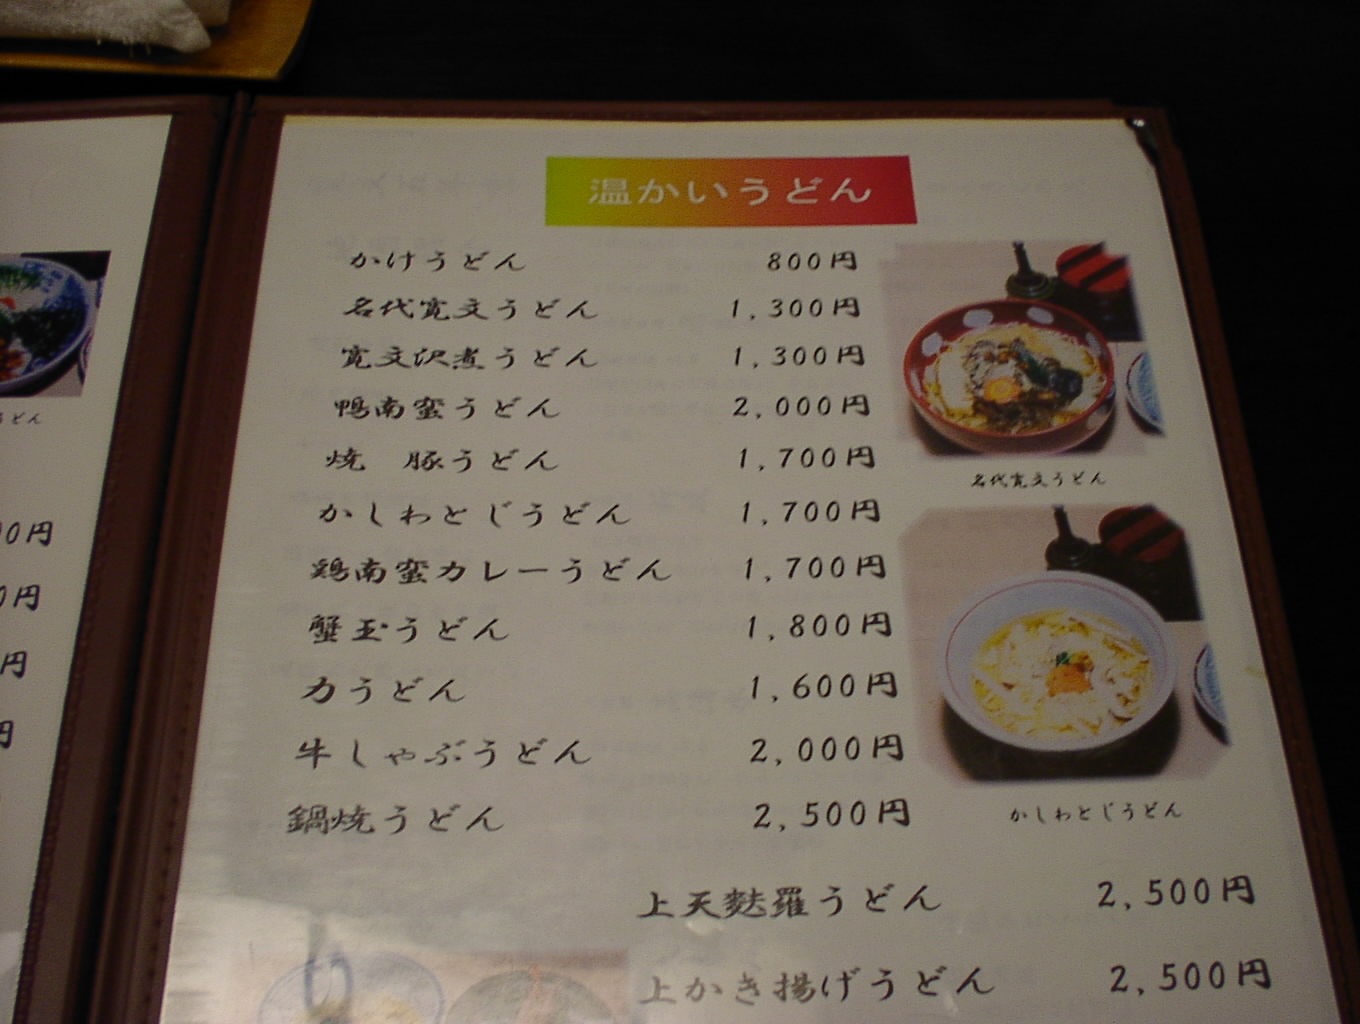 温かいうどん
かけうどん 800円
名代寛文うどん 1,300円
寛文沢煮うどん 1,300円
鴨南蛮うどん 2,000円
焼 豚うどん 1,700円
かしわとじうどん 1,700円
鶏南蛮カレーうどん 1,700円
蟹玉うどん 1,800円
力うどん 1,600円
牛しゃぶうどん 2,000円
鍋焼うどん 2,500円
上天麩羅うどん 2,500円
上かき揚げうどん 2,500円
名代寛文うどん
かしわとじうどん
うどん
0円
0円
円
円